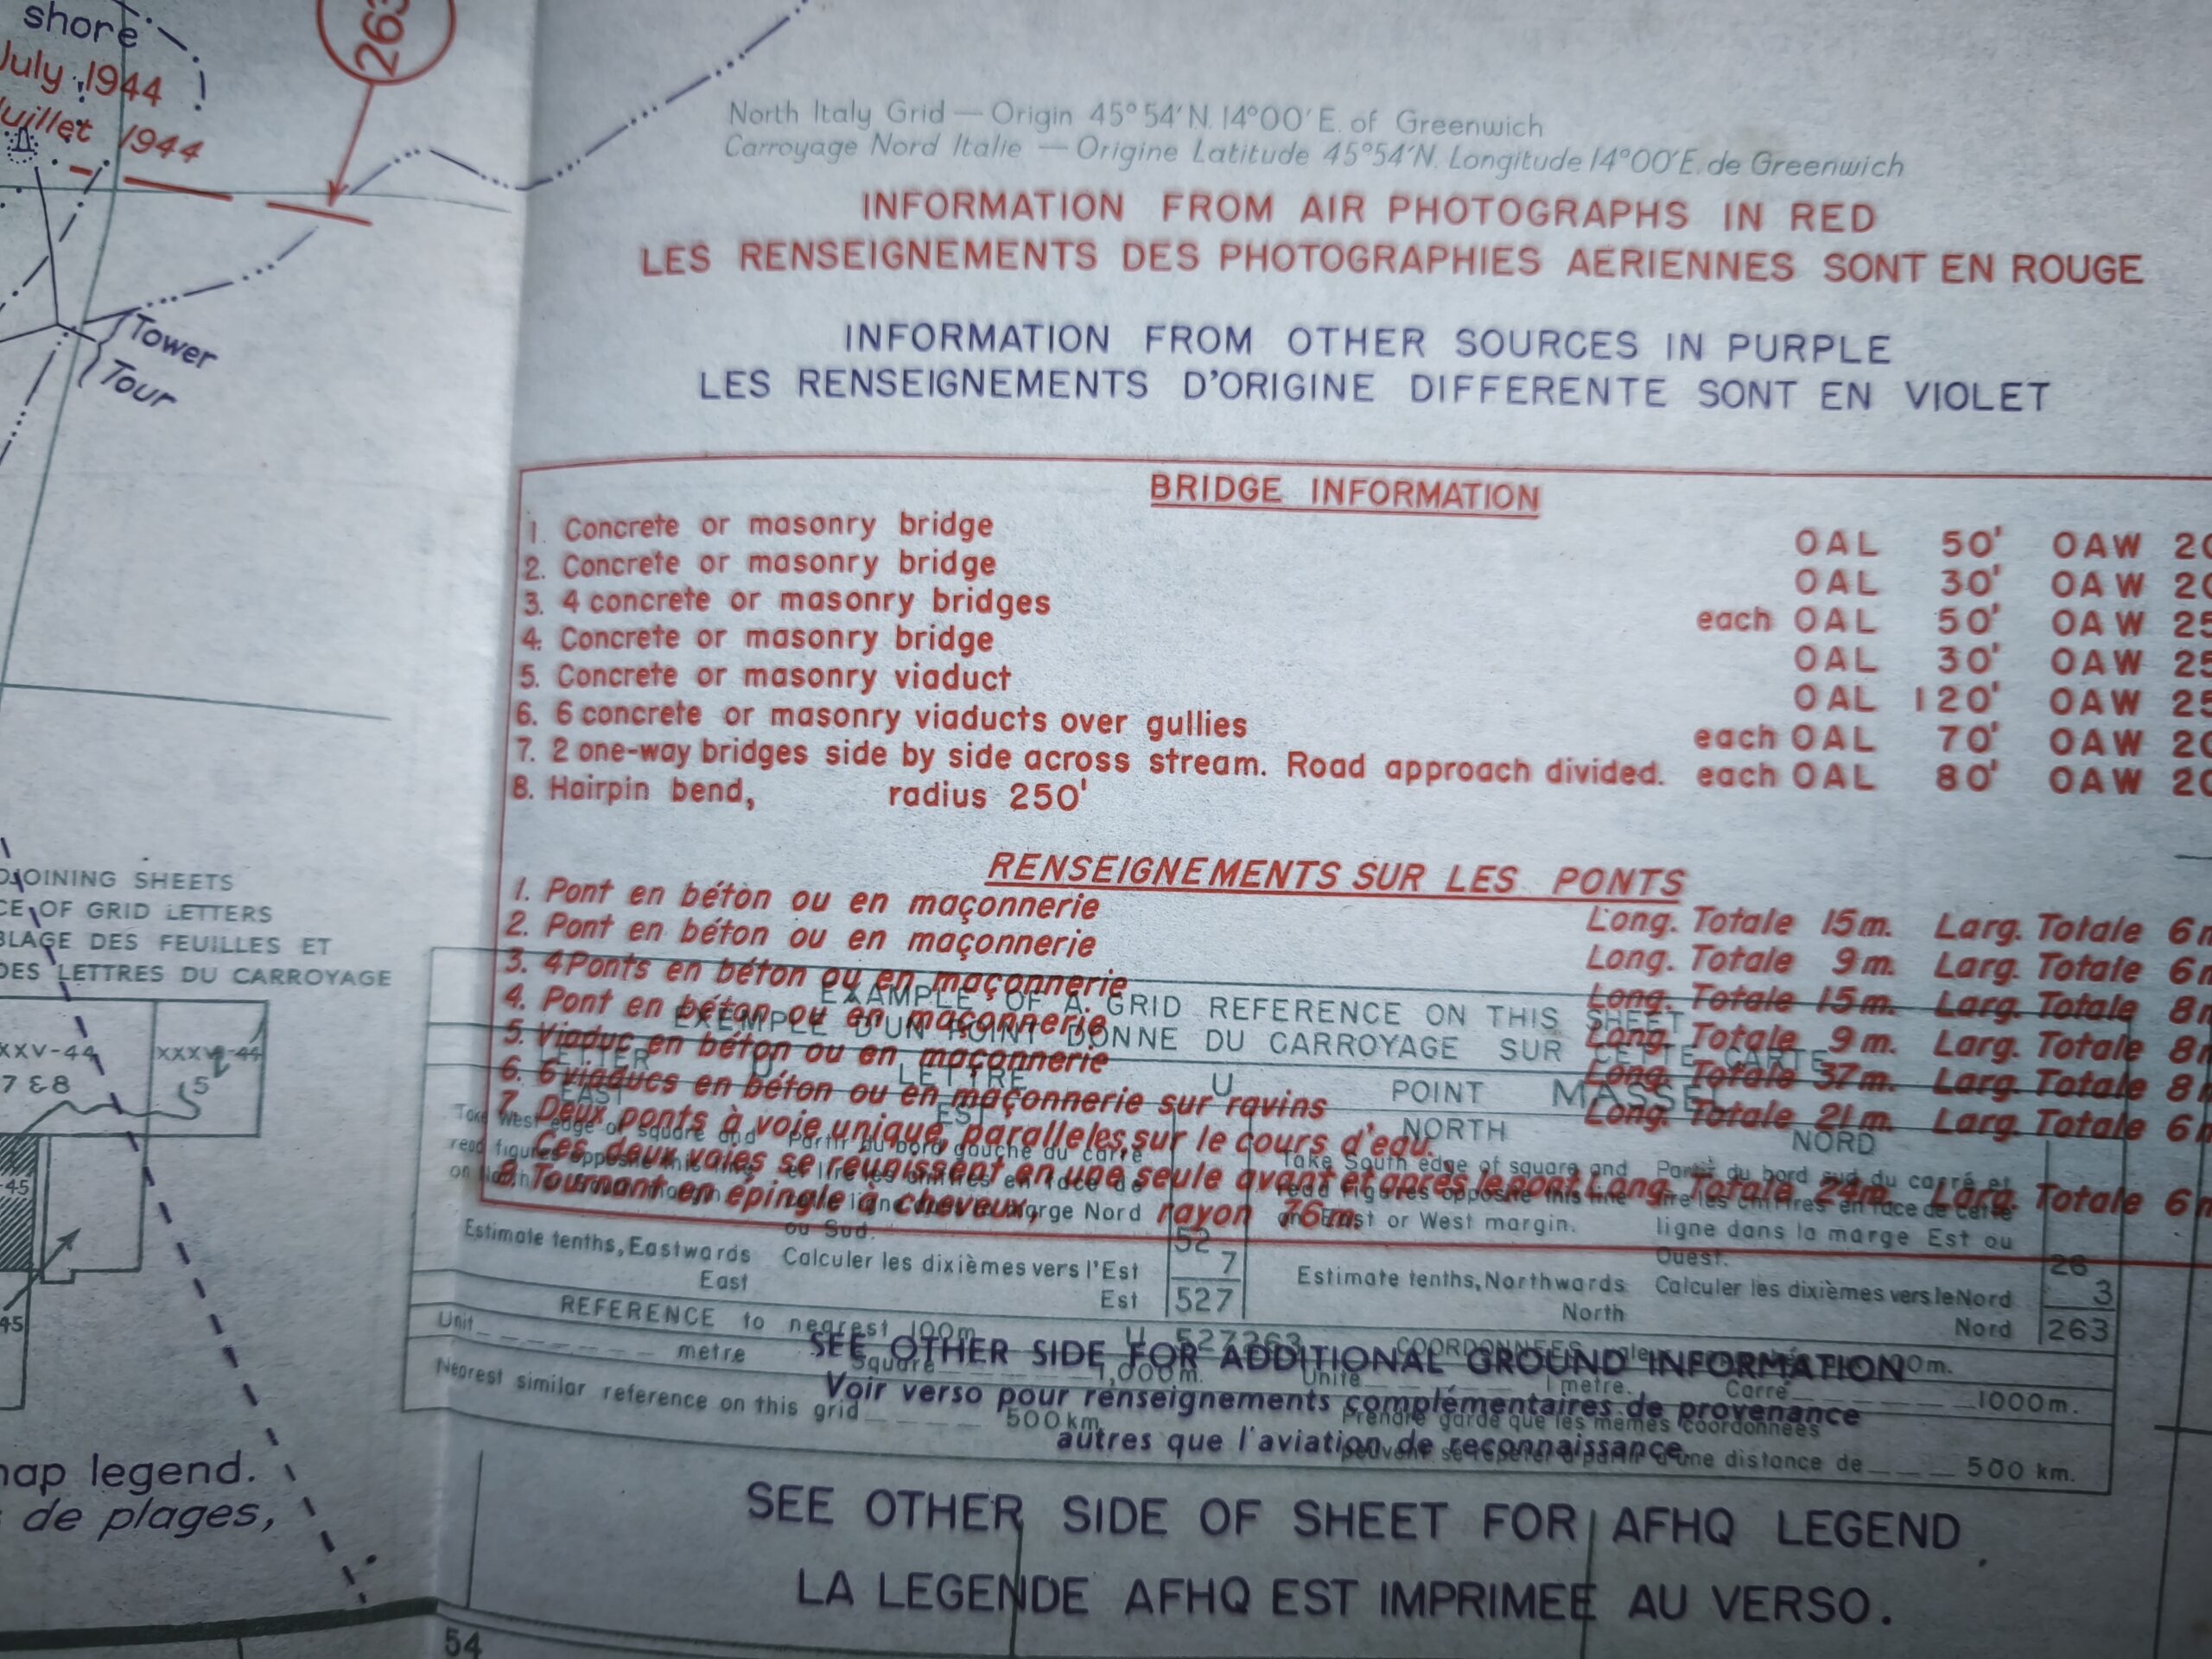 shore
July 1944
Juillet 1944
263
Tower
Tour
North Italy Grid — Origin 45°54'N. 14°00'E. of Greenwich
Carroyage Nord Italie — Origine Latitude 45°54'N. Longitude 14°00'E. de Greenwich
INFORMATION FROM AIR PHOTOGRAPHS IN RED
LES RENSEIGNEMENTS DES PHOTOGRAPHIES AERIENNES SONT EN ROUGE
INFORMATION FROM OTHER SOURCES IN PURPLE
LES RENSEIGNEMENTS D'ORIGINE DIFFERENTE SONT EN VIOLET
BRIDGE INFORMATION
1. Concrete or masonry bridge OAL 50' OAW 20
2. Concrete or masonry bridge OAL 30' OAW 20
3. 4 concrete or masonry bridges each OAL 50' OAW 25
4. Concrete or masonry bridge OAL 30' OAW 25
5. Concrete or masonry viaduct OAL 120' OAW 25
6. 6 concrete or masonry viaducts over gullies each OAL 70' OAW 20
7. 2 one-way bridges side by side across stream. Road approach divided. each OAL 80' OAW 20
8. Hairpin bend, radius 250'
RENSEIGNEMENTS SUR LES PONTS
1. Pont en béton ou en maçonnerie Long. Totale 15m. Larg. Totale 6m
2. Pont en béton ou en maçonnerie Long. Totale 9m. Larg. Totale 6m
3. 4 Ponts en béton ou en maçonnerie Long. Totale 15m. Larg. Totale 8m
4. Pont en béton ou en maçonnerie Long. Totale 9m. Larg. Totale 8m
5. Viaduc en béton ou en maçonnerie Long. Totale 37m. Larg. Totale 8m
6. 6 viaducs en béton ou en maçonnerie sur ravins Long. Totale 21m. Larg. Totale 6m
7. Deux ponts à voie unique paralleles sur le cours d'eau.
Ces deux voies se réunissent en une seule avant et après le pont Long. Totale 24m. Larg. Totale 6m
8. Tournant en épingle à cheveux, rayon 76m.
OJOINING SHEETS
CE OF GRID LETTERS
BLAGE DES FEUILLES ET
DES LETTRES DU CARROYAGE
XXV-44
7 & 8
5
-45
45
EXAMPLE OF A GRID REFERENCE ON THIS SHEET
EXEMPLE D'UN POINT DONNE DU CARROYAGE SUR CETTE CARTE
LETTER U LETTRE U POINT MASSEL
EAST EST NORTH NORD
Take West edge of square and
read figures opposite this line
Partir du bord gauche du carré
et lire les chiffres en face de
ligne marge Nord
ou Sud.
Take South edge of square and
read figures opposite this line
on East or West margin.
Partir du bord sud du carré et
lire les chiffres en face de cette
ligne dans la marge Est ou
Ouest.
52
26
Estimate tenths, Eastwards Calculer les dixièmes vers l'Est 7
Estimate tenths, Northwards Calculer les dixièmes vers le Nord 3
East Est 527
North Nord 263
REFERENCE to nearest 100m U 527263 COORDONNEES 100m.
Unit metre Square 1,000m. Unité 1 metre. Carré 1000m.
Nearest similar reference on this grid 500 km.
Prendre garde que les mêmes coordonnées
peuvent se répéter à partir d'une distance de 500 km.
SEE OTHER SIDE FOR ADDITIONAL GROUND INFORMATION
Voir verso pour renseignements complémentaires de provenance
autres que l'aviation de reconnaissance.
map legend.
de plages,
SEE OTHER SIDE OF SHEET FOR AFHQ LEGEND
LA LEGENDE AFHQ EST IMPRIMEE AU VERSO.
54